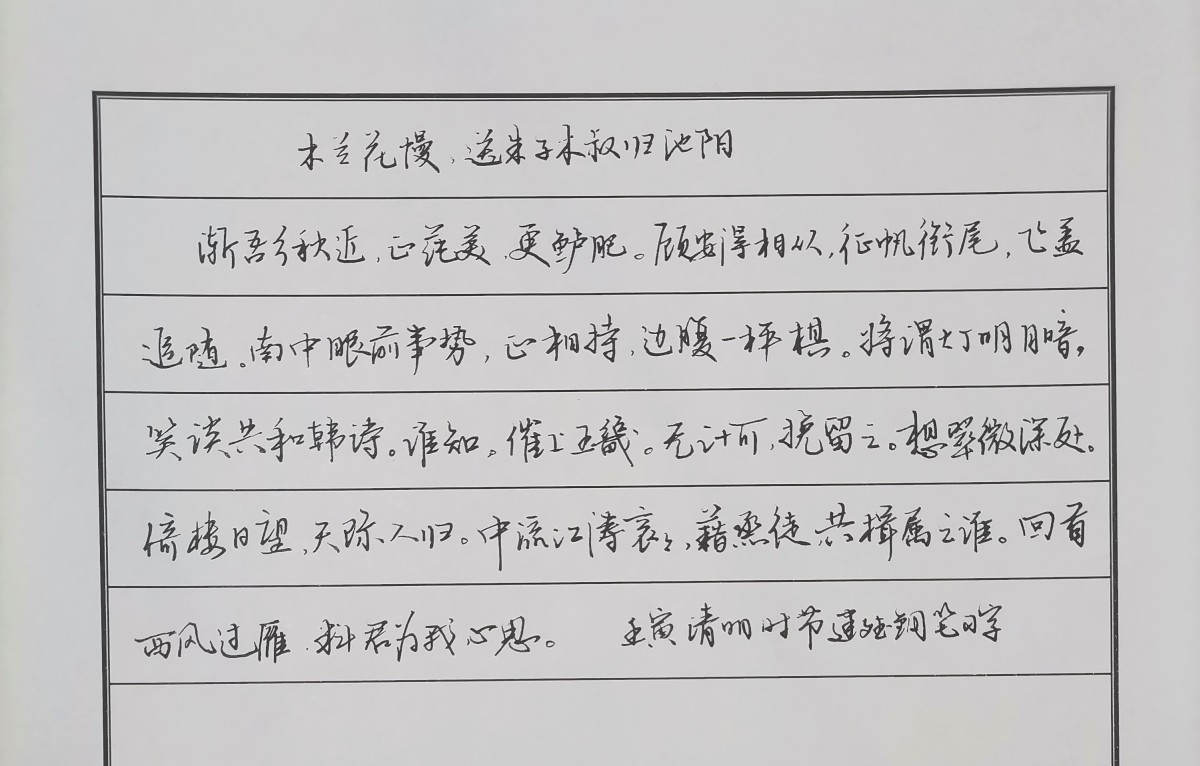 木兰花慢，送朱子木叔归池阳
渐吾乡秋近，正莼美，更鲈肥。顾安得相从，征帆衔尾，飞盖
追随。南中眼前事势，正相持，边腹一枰棋。将谓灯明月暗，
笑谈共和韩诗。谁知。催上王畿。无计可，挽留之。想翠微深处。
倚楼日望，天际人归。中流江涛衮衮，藉烝徒共楫属之谁。回首
西风过雁，料君为我心思。 壬寅清明时节建 钢笔习字